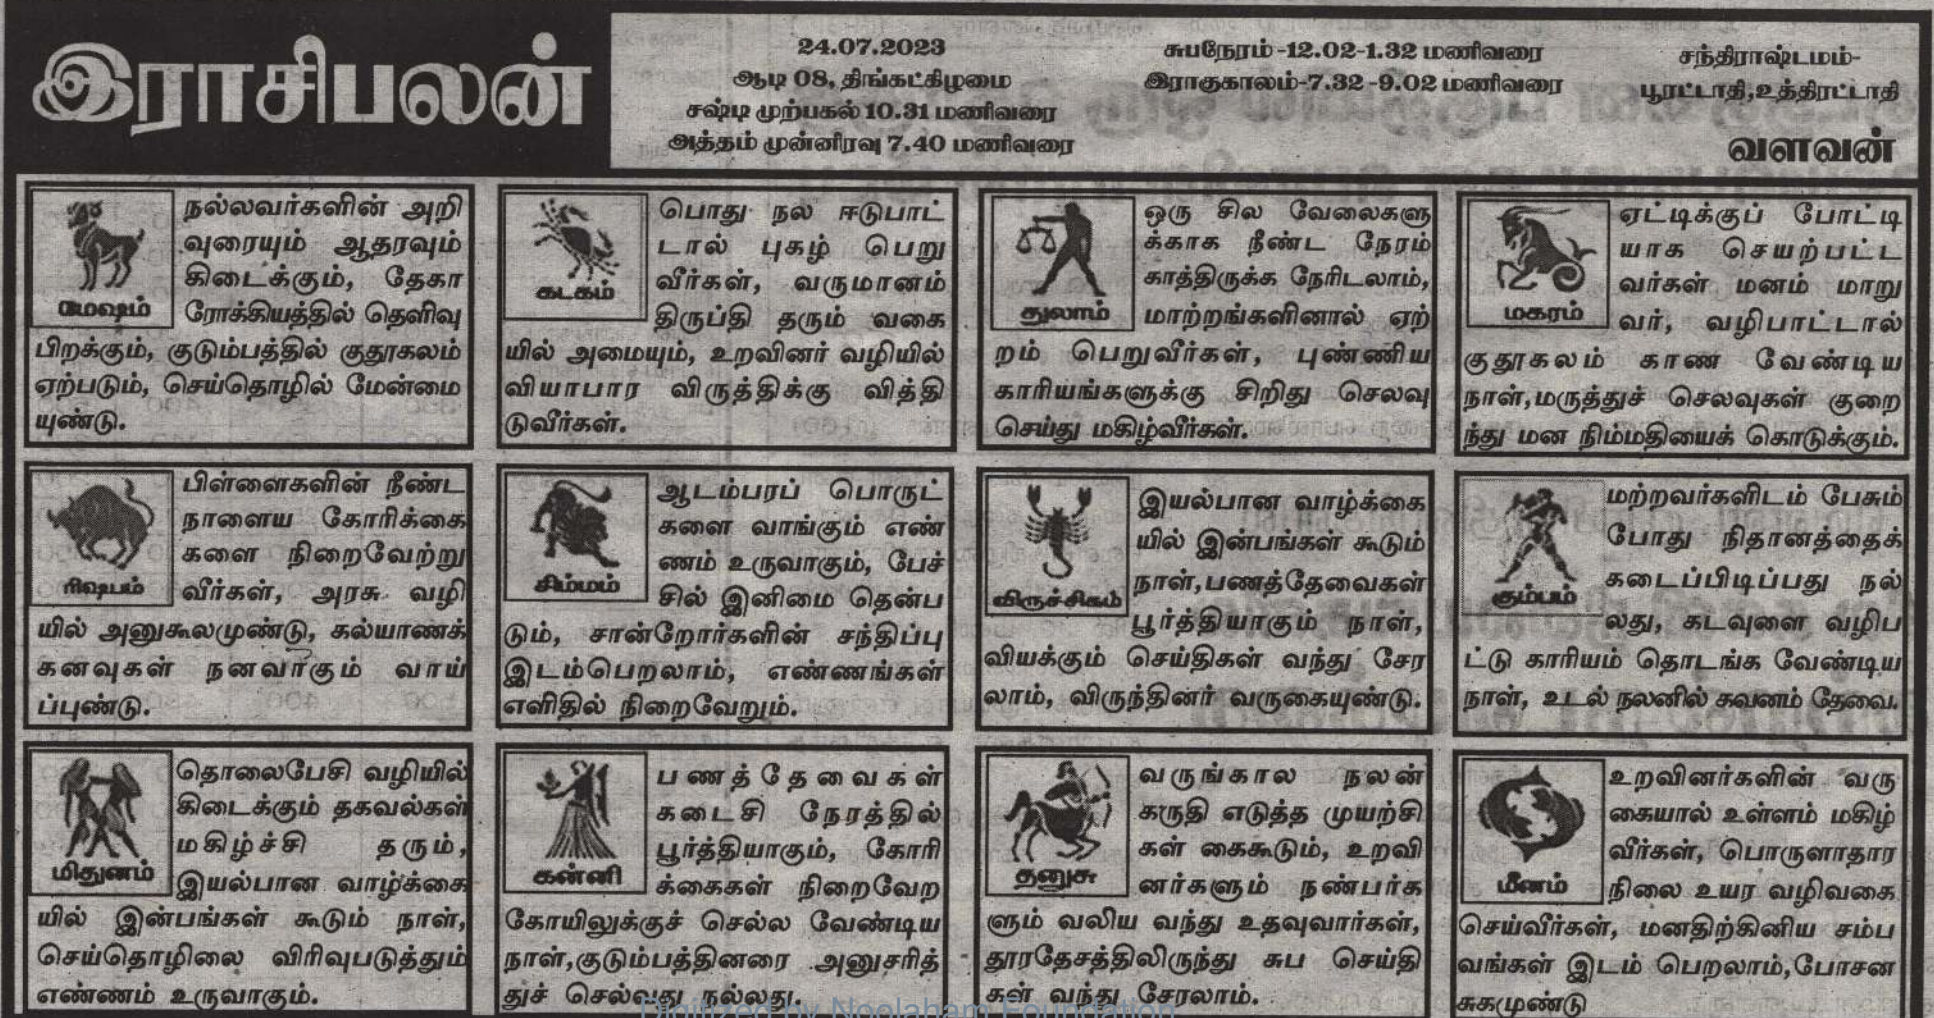 இராசிபலன்
24.07.2023
ஆடி 08, திங்கட்கிழமை
சஷ்டி முற்பகல் 10.31 மணிவரை
அத்தம் முன்னிரவு 7.40 மணிவரை
சுபநேரம் -12.02-1.32 மணிவரை
இராகுகாலம்-7.32 -9.02 மணிவரை
சந்திராஷ்டமம்-
பூரட்டாதி,உத்திரட்டாதி
வளவன்
மேஷம்
நல்லவர்களின் அறி
வுரையும் ஆதரவும்
கிடைக்கும், தேகா
ரோக்கியத்தில் தெளிவு
பிறக்கும், குடும்பத்தில் குதூகலம்
ஏற்படும், செய்தொழில் மேன்மை
யுண்டு.
ரிஷபம்
பிள்ளைகளின் நீண்ட
நாளைய கோரிக்கை
களை நிறைவேற்று
வீர்கள், அரசு வழி
யில் அனுகூலமுண்டு, கல்யாணக்
கனவுகள் நனவாகும் வாய்
ப்புண்டு.
மிதுனம்
தொலைபேசி வழியில்
கிடைக்கும் தகவல்கள்
மகிழ்ச்சி தரும்,
இயல்பான வாழ்க்கை
யில் இன்பங்கள் கூடும் நாள்,
செய்தொழிலை விரிவுபடுத்தும்
எண்ணம் உருவாகும்.
கடகம்
பொது நல ஈடுபாட்
டால் புகழ் பெறு
வீர்கள், வருமானம்
திருப்தி தரும் வகை
யில் அமையும், உறவினர் வழியில்
வியாபார விருத்திக்கு வித்தி
டுவீர்கள்.
சிம்மம்
ஆடம்பரப் பொருட்
களை வாங்கும் எண்
ணம் உருவாகும், பேச்
சில் இனிமை தென்ப
டும், சான்றோர்களின் சந்திப்பு
இடம்பெறலாம், எண்ணங்கள்
எளிதில் நிறைவேறும்.
கன்னி
பணத்தேவைகள்
கடைசி நேரத்தில்
பூர்த்தியாகும், கோரி
க்கைகள் நிறைவேற
கோயிலுக்குச் செல்ல வேண்டிய
நாள்,குடும்பத்தினரை அனுசரித்
துச் செல்வது நல்லது.
துலாம்
ஒரு சில வேலைகளு
க்காக நீண்ட நேரம்
காத்திருக்க நேரிடலாம்,
மாற்றங்களினால் ஏற்
றம் பெறுவீர்கள், புண்ணிய
காரியங்களுக்கு சிறிது செலவு
செய்து மகிழ்வீர்கள்.
விருச்சிகம்
இயல்பான வாழ்க்கை
யில் இன்பங்கள் கூடும்
நாள்,பணத்தேவைகள்
பூர்த்தியாகும் நாள்,
வியக்கும் செய்திகள் வந்து சேர
லாம், விருந்தினர் வருகையுண்டு.
தனுசு
வருங்கால நலன்
கருதி எடுத்த முயற்சி
கள் கைகூடும், உறவி
னர்களும் நண்பர்க
ளும் வலிய வந்து உதவுவார்கள்,
தூரதேசத்திலிருந்து சுப செய்தி
கள் வந்து சேரலாம்.
மகரம்
ஏட்டிக்குப் போட்டி
யாக செயற்பட்ட
வர்கள் மனம் மாறு
வர், வழிபாட்டால்
குதூகலம் காண வேண்டிய
நாள்,மருத்துச் செலவுகள் குறை
ந்து மன நிம்மதியைக் கொடுக்கும்.
கும்பம்
மற்றவர்களிடம் பேசும்
போது நிதானத்தைக்
கடைப்பிடிப்பது நல்
லது, கடவுளை வழிப
ட்டு காரியம் தொடங்க வேண்டிய
நாள், உடல் நலனில் கவனம் தேவை.
மீனம்
உறவினர்களின் வரு
கையால் உள்ளம் மகிழ்
வீர்கள், பொருளாதார
நிலை உயர வழிவகை
செய்வீர்கள், மனதிற்கினிய சம்ப
வங்கள் இடம் பெறலாம்,போசன
சுகமுண்டு
Digitized by Noolaham Foundation